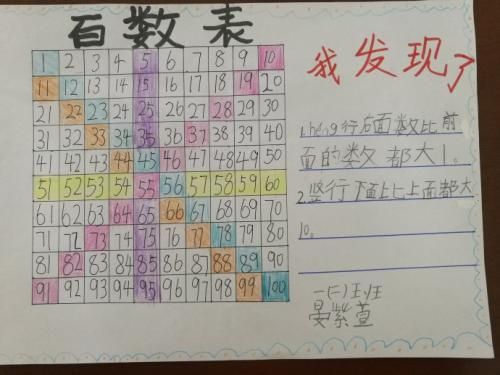 百数表
1 2 3 4 5 6 7 8 9 10
11 12 13 14 15 16 17 18 19 20
21 22 23 24 25 26 27 28 29 30
31 32 33 34 35 36 37 38 39 40
41 42 43 44 45 46 47 48 49 50
51 52 53 54 55 56 57 58 59 60
61 62 63 64 65 66 67 68 69 70
71 72 73 74 75 76 77 78 79 80
81 82 83 84 85 86 87 88 89 90
91 92 93 94 95 96 97 98 99 100
我发现了
1.héng行右面数比前
面的数都大1。
2.竖行下面比上面都大
10。
一(二)班
晏紫萱